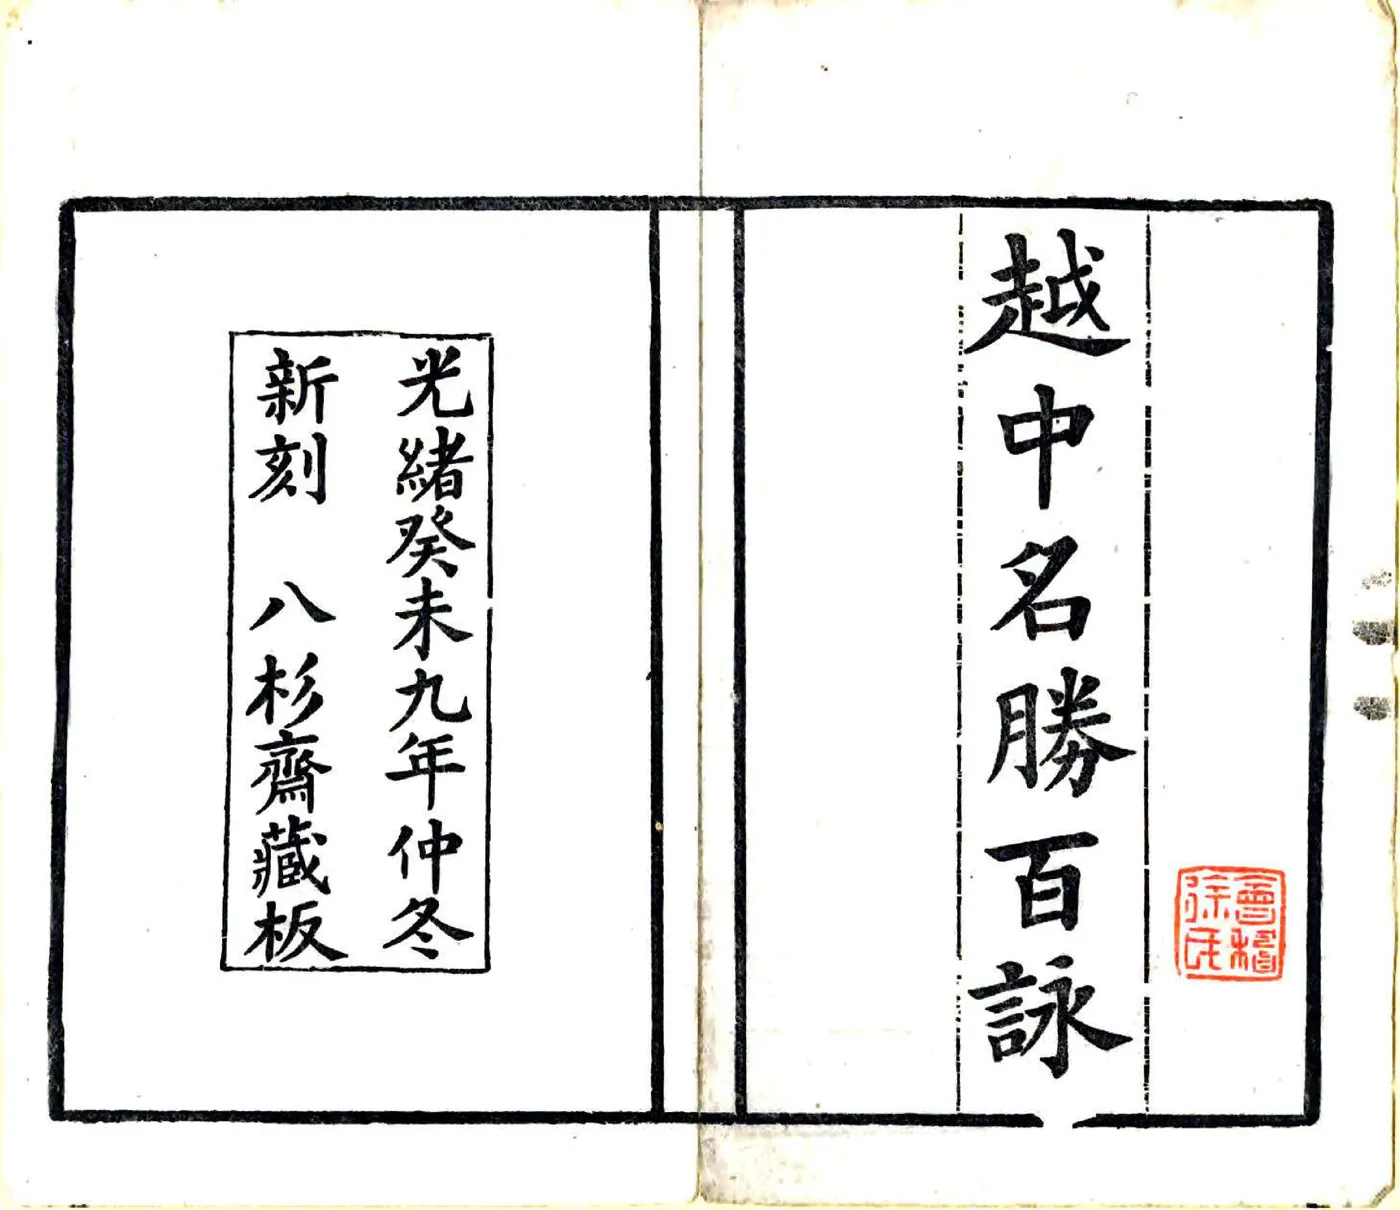 越中名勝百詠
會稽
徐氏
光緒癸未九年仲冬
新刻 八杉齋藏板